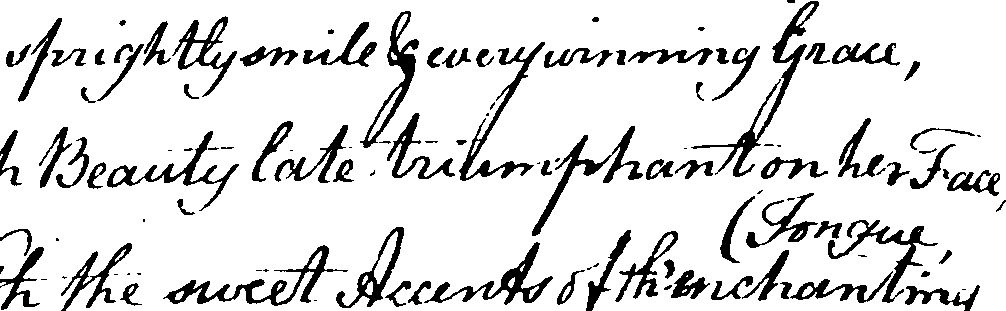 sprightly smile & every winning Grace,
h Beauty late triumphant on her Face,
(Tongue,
th the sweet Accents of th' enchanting